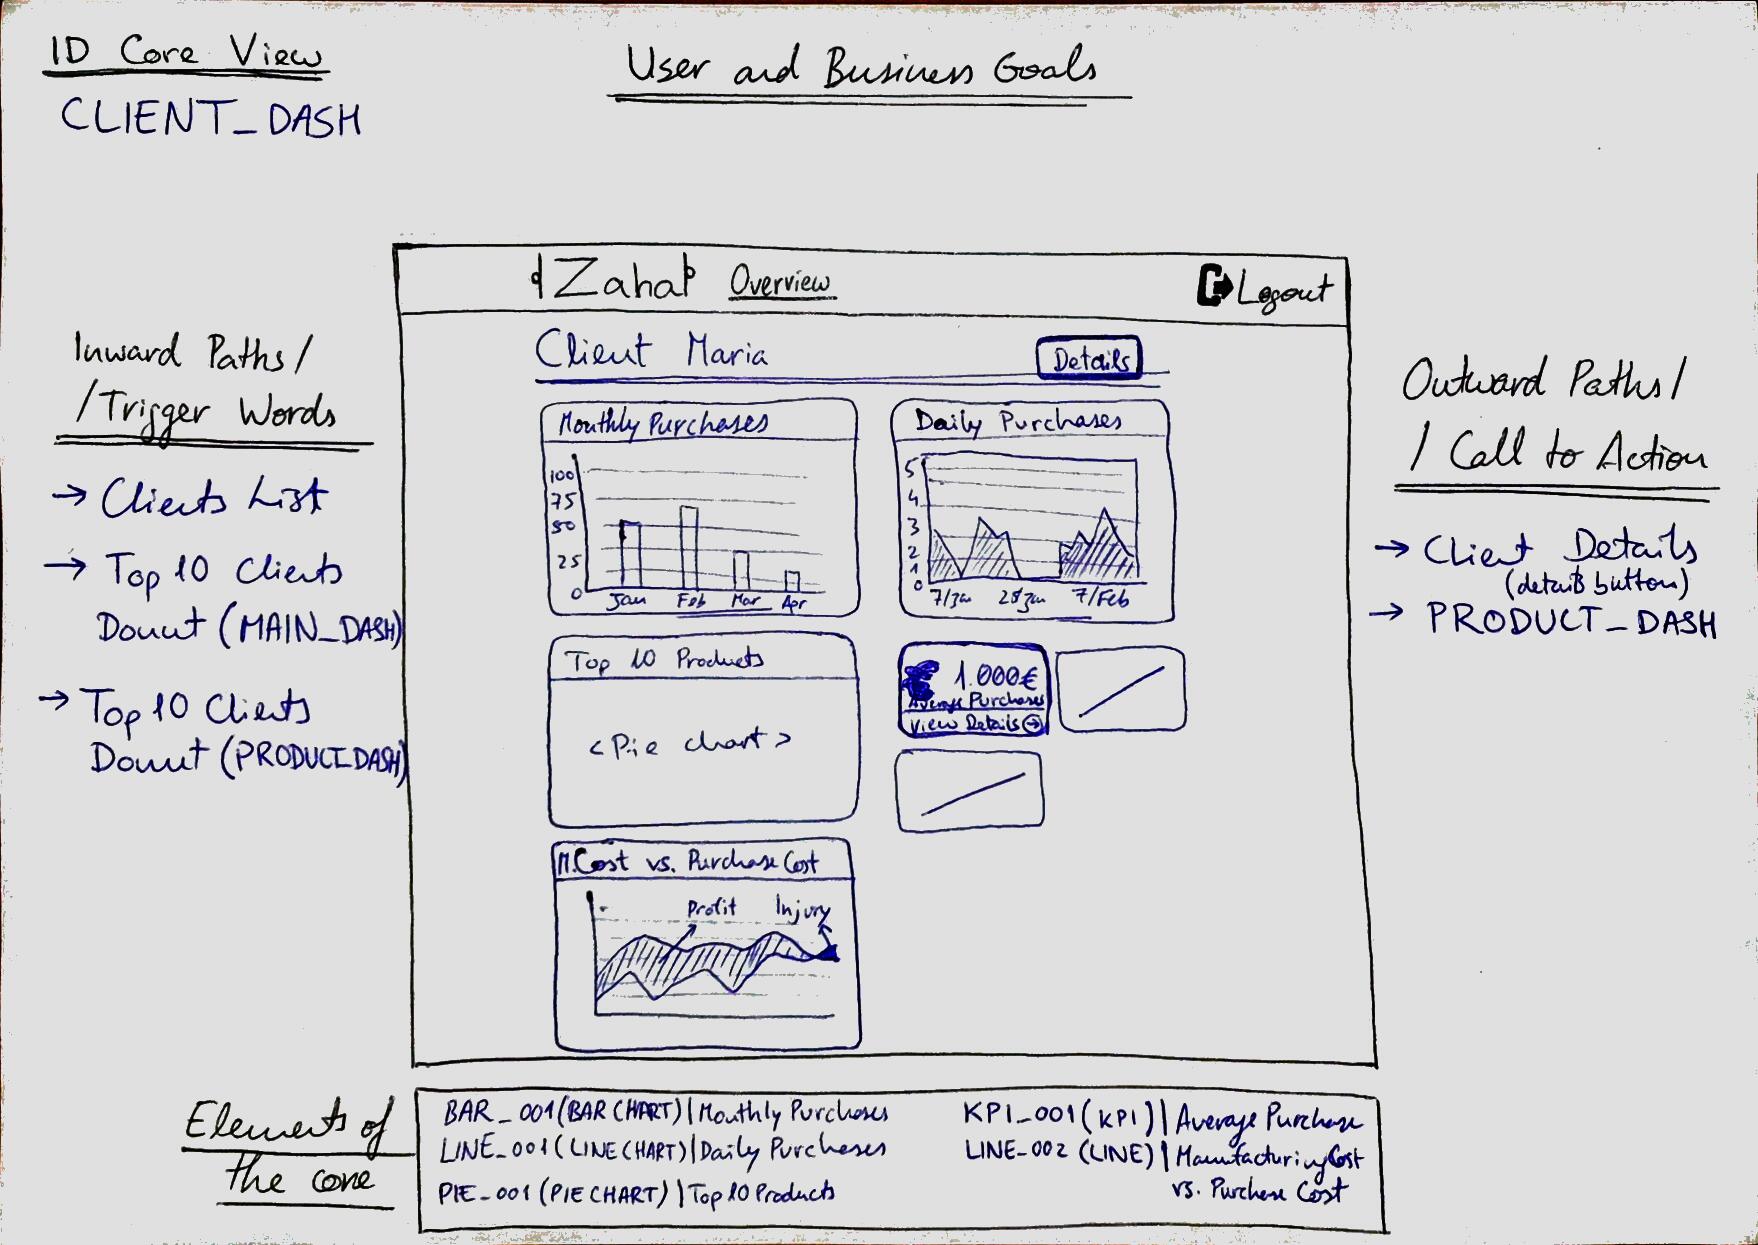 ID Core View
CLIENT_DASH
User and Business Goals
Zaha Overview
Logout
Client Maria
Details
Inward Paths/
/Trigger Words
→ Clients List
→ Top 10 Clients
Donut (MAIN_DASH)
→ Top 10 Clients
Donut (PRODUCT_DASH)
Monthly Purchases
100
75
50
25
0
Jan Feb Mar Apr
Daily Purchases
5
4
3
2
1
0
7/Jan 28/Jan 7/Feb
Top 10 Products
<Pie chart>
1.000€
Average Purchases
View Details
M.Cost vs. Purchase Cost
Profit Injury
Outward Paths/
/ Call to Action
→ Client Details
(details button)
→ PRODUCT_DASH
Elements of
the core
BAR_001(BAR CHART)|Monthly Purchases
LINE_001(LINE CHART)|Daily Purchases
PIE_001(PIE CHART)|Top 10 Products
KPI_001(KPI)|Average Purchase
LINE_002 (LINE)|Manufacturing Cost
vs. Purchase Cost